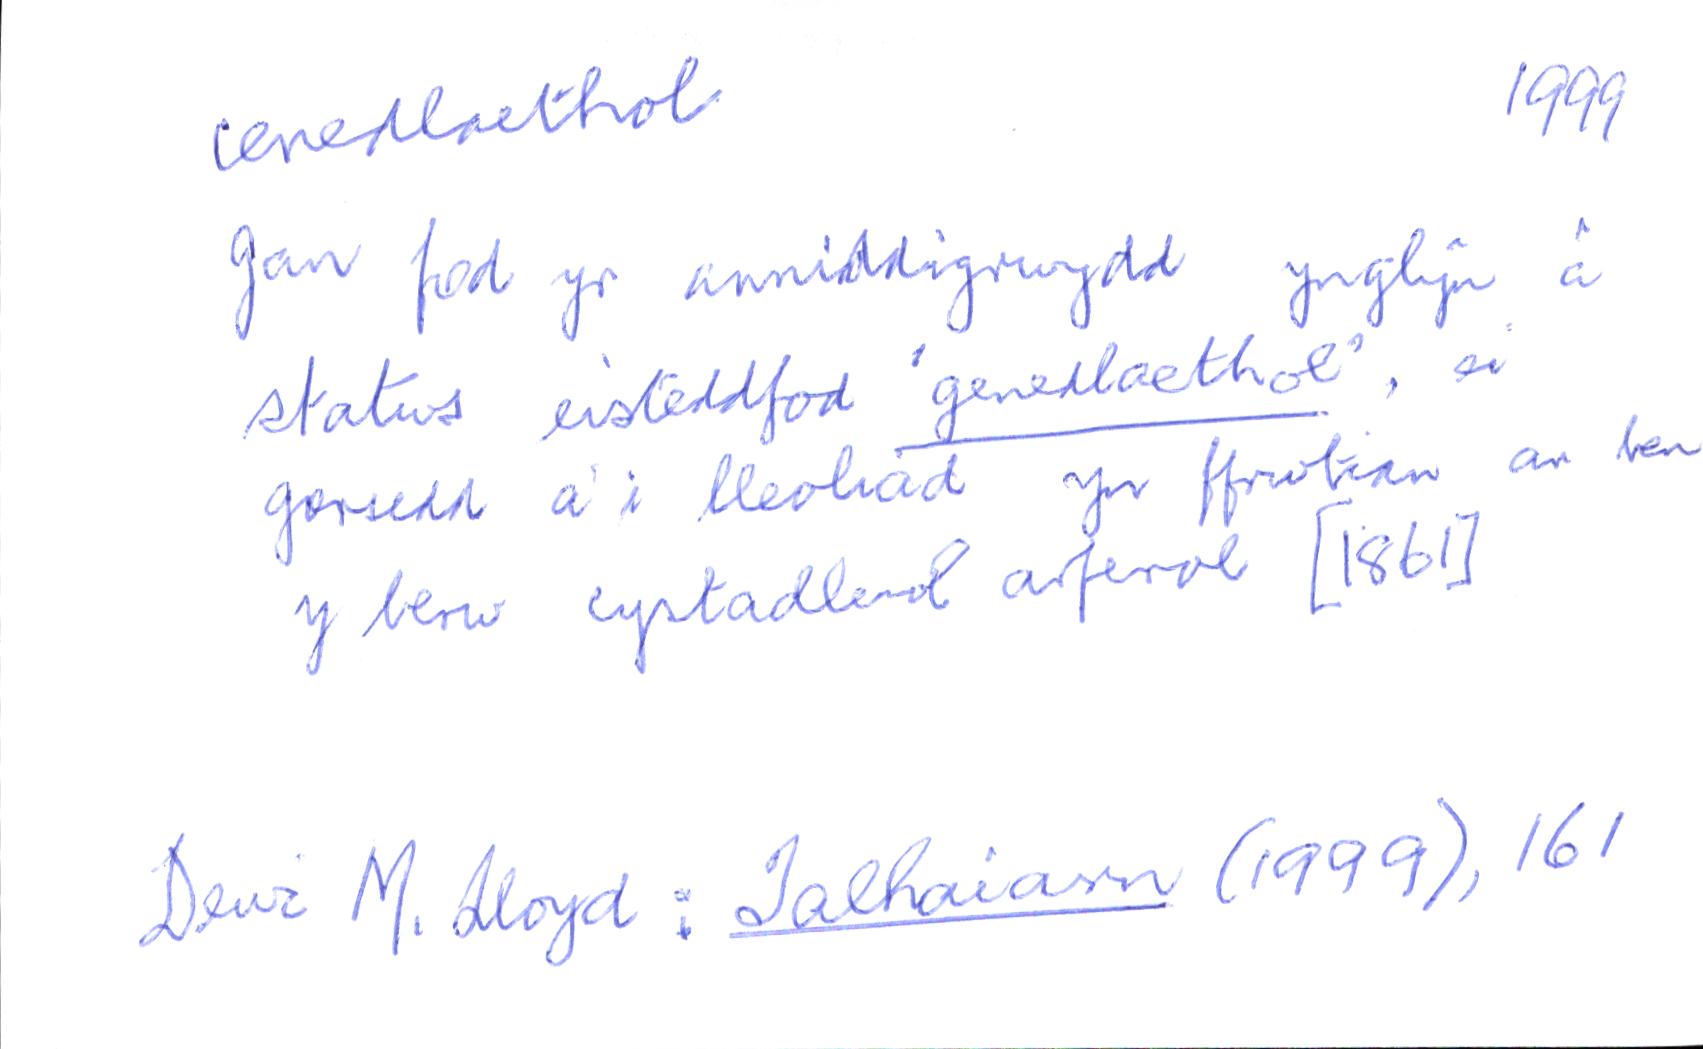 cenedlaethol 1999
Gan fod yr anniddigrwydd ynglŷn â
statws eisteddfod 'genedlaethol', ei
gorsedd a'i lleoliad yn ffrwtian ar ben
y berw cystadleuol arferol [1861]
Dewi M. Lloyd : Talhaiarn (1999), 161